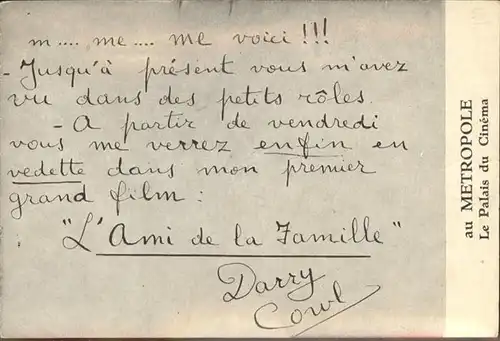 m.... me.... me voici !!!
- Jusqu'à présent vous m'avez
vu dans des petits rôles.
- A partir de vendredi
vous me verrez enfin en
vedette dans mon premier
grand film :
"L'Ami de la Famille"
Darry
Cowl
au METROPOLE
Le Palais du Cinéma